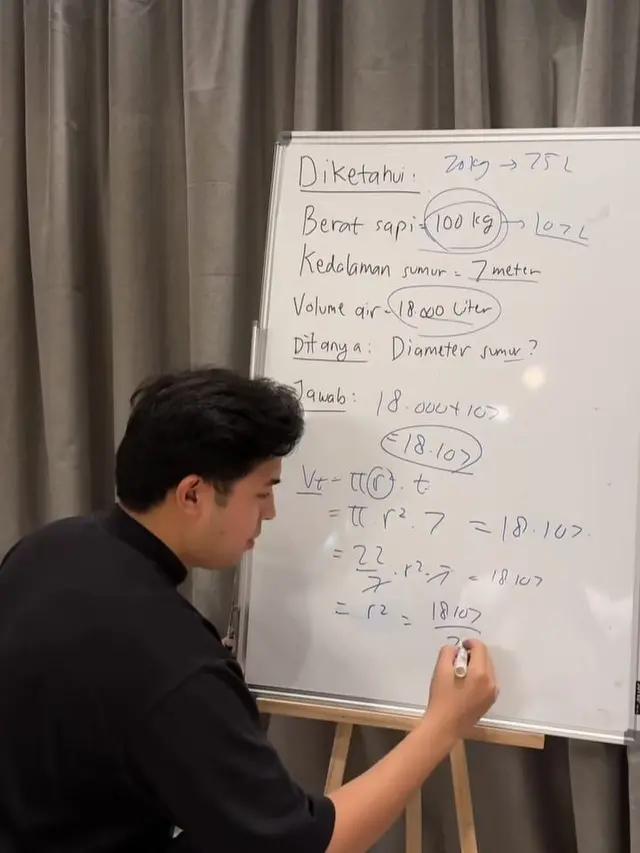 Diketahui: 70kg → 75 L
Berat sapi = 100 kg → 107 L
Kedalaman sumur = 7 meter
Volume air = 18.000 Liter
Ditanya: Diameter sumur?
Jawab: 18.000 + 107
= 18.107
Vt = π r . t
= π . r² . 7 = 18.107
= 22/7 . r² . 7 = 18107
= r² = 18107